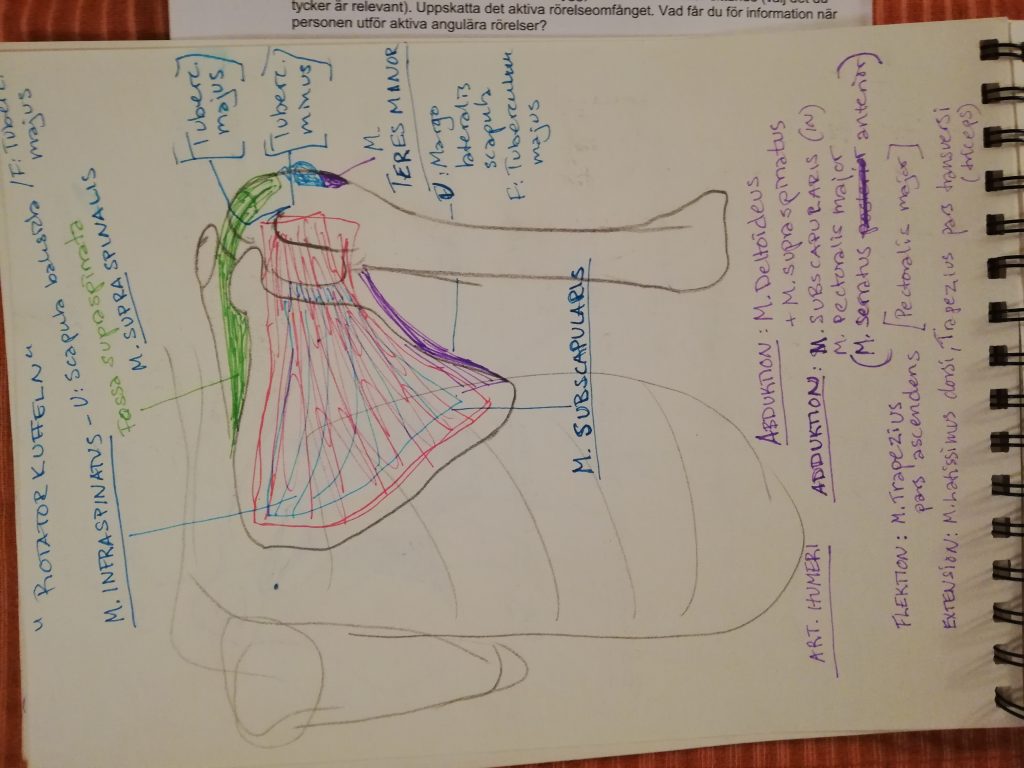 tycker är relevant). Uppskatta det aktiva rörelseomfånget. Vad får du för information när
personen utför aktiva angulära rörelser?
" ROTATORKUFFEN "
M. INFRASPINATUS - U: Scapula baksida / F: Tuberc.
majus
Fossa supraspinata
M. SUPRASPINALIS
[Tuberc.
majus]
[Tuberc.
minus]
M.
TERES MINOR
U: Margo
lateralis
scapula
F: Tuberculum
majus
M. SUBSCAPULARIS
ART. HUMERI
ABDUKTION: M. Deltoideus
+ M. supraspinatus
ADDUKTION: M. SUBSCAPURARIS (IN)
M. Pectoralis major
(M. Serratus posterior anterior)
FLEKTION: M. Trapezius
pars ascendens [Pectoralis major]
EXTENSION: M. Latissimus dorsi, Trapezius pars transversi
(triceps)